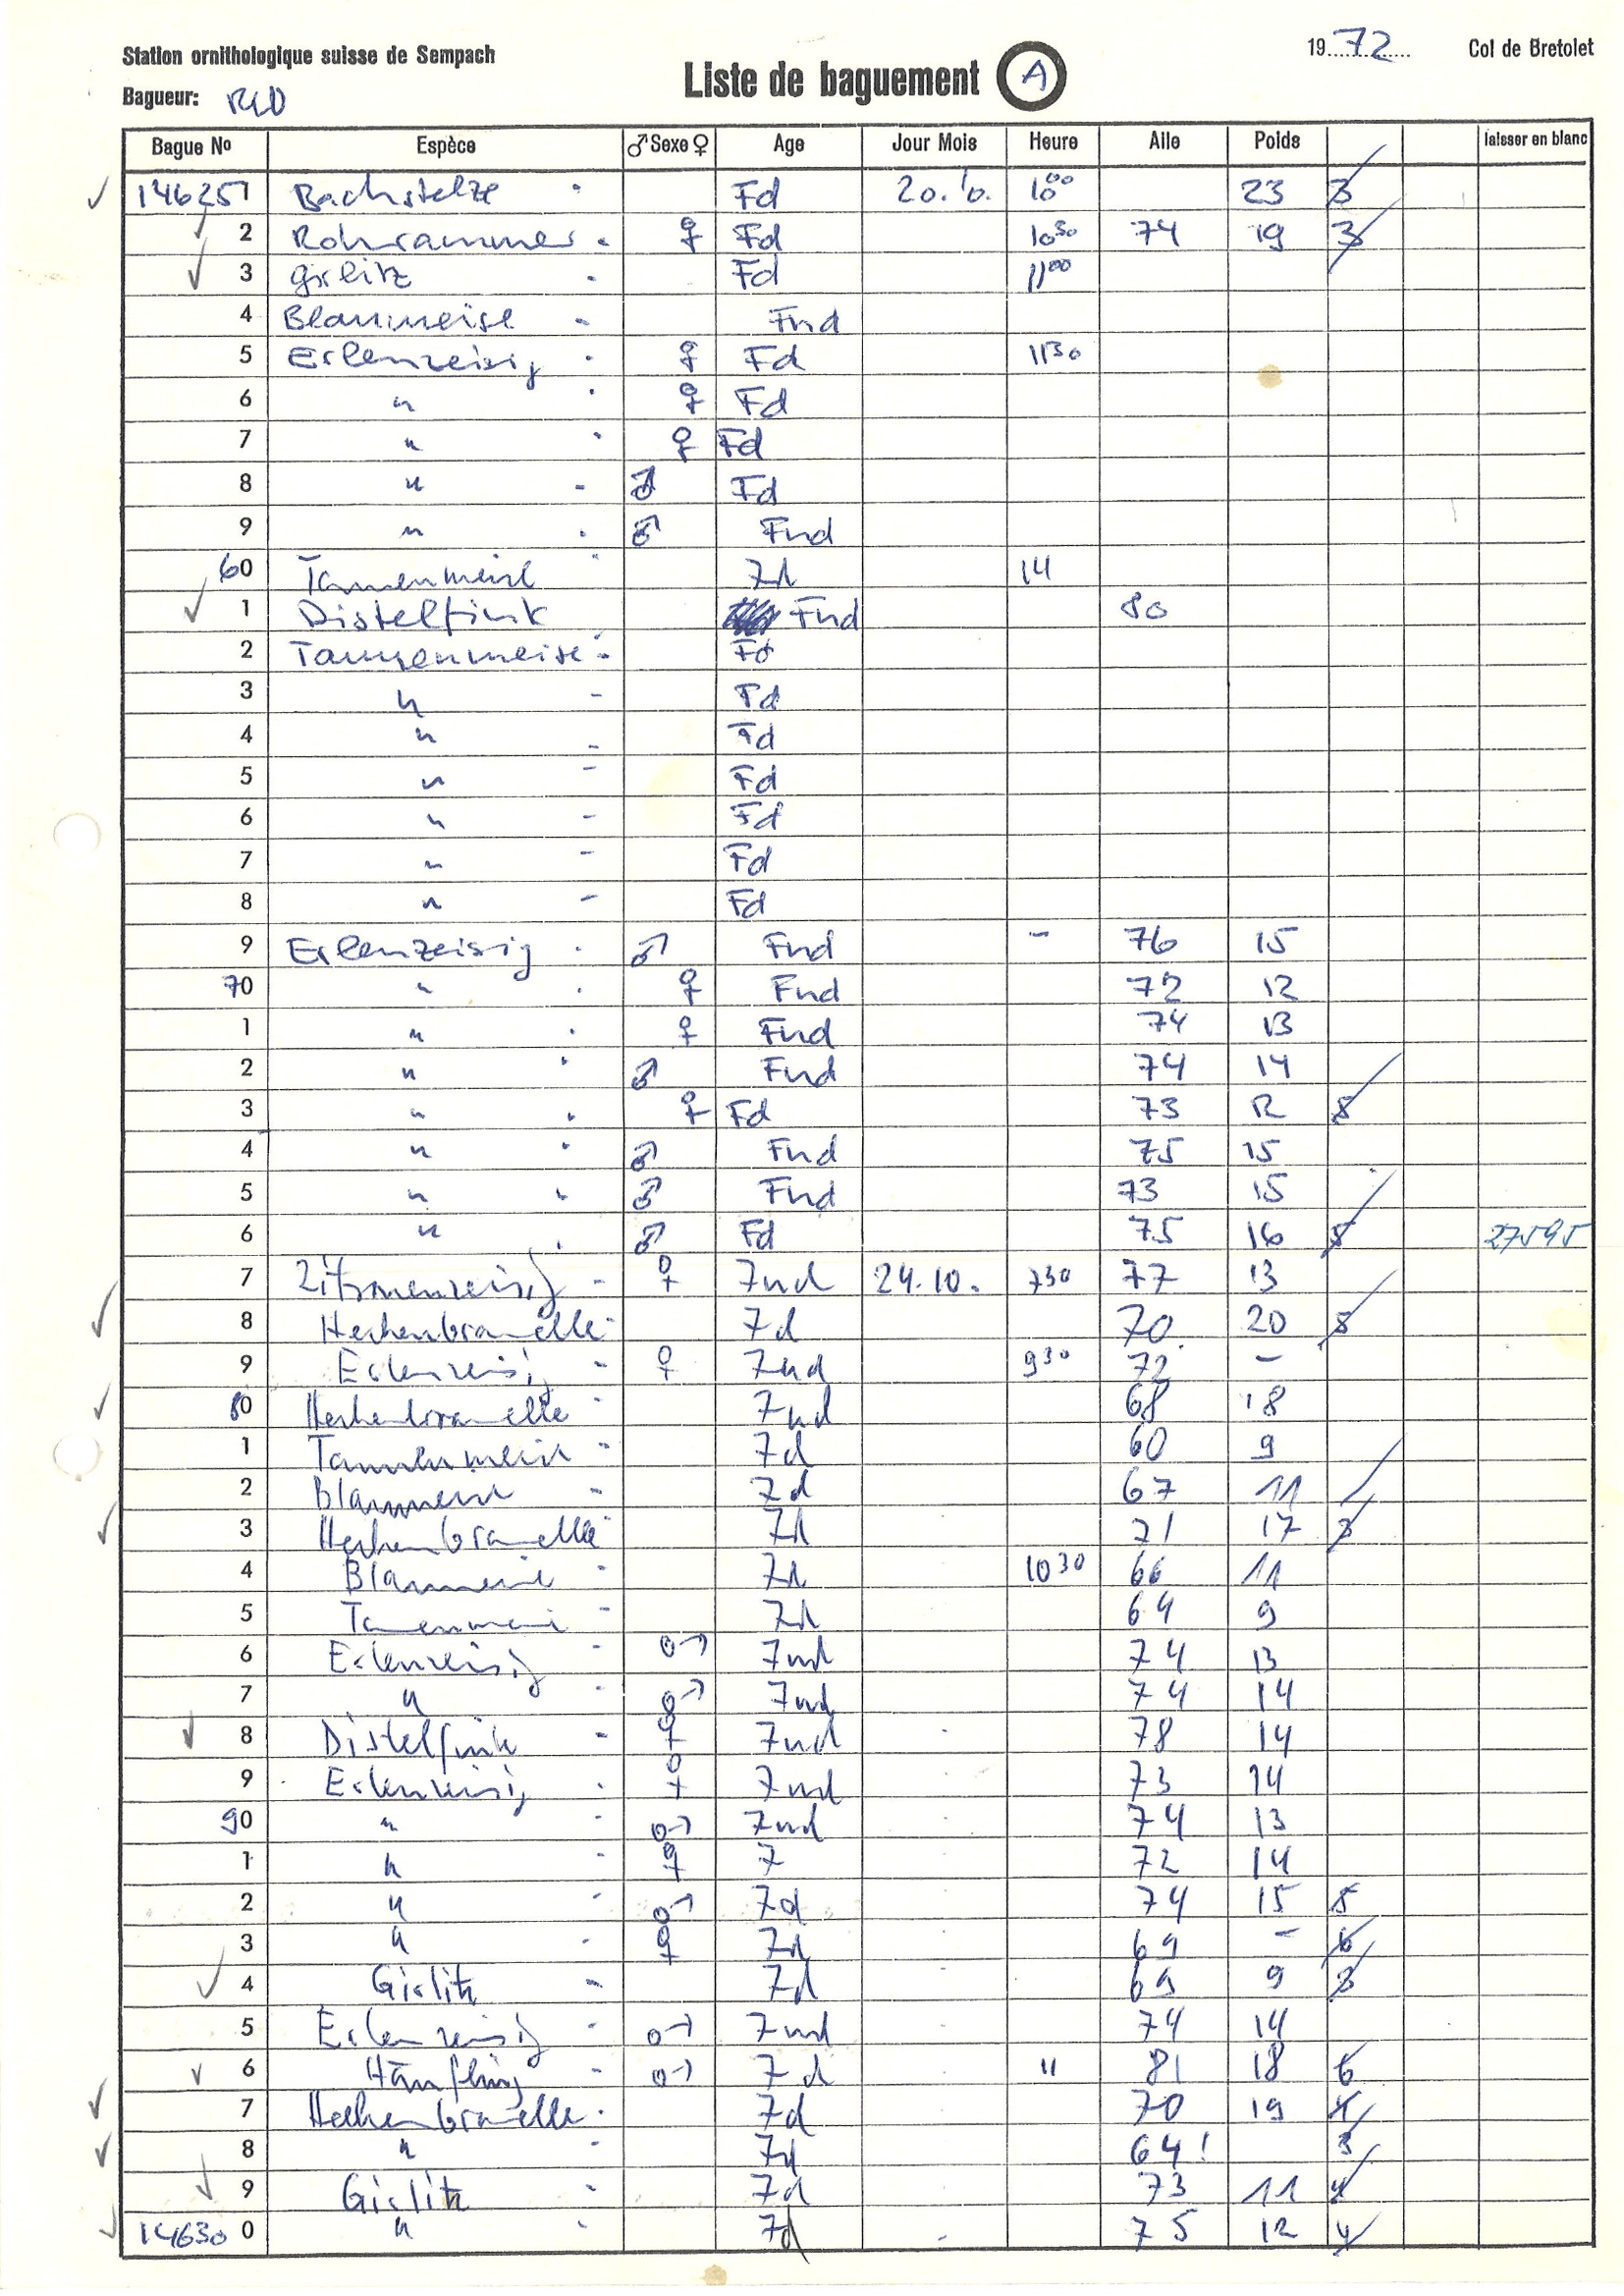 Station ornithologique suisse de Sempach
Liste de baguement A
1972 Col de Bretolet
Bagueur:
Bague No Espèce ♂ Sexe ♀ Age Jour Mois Heure Aile Poids laisser en blanc
146251 Bachstelze Fd 20.10. 10⁰⁰ 23 3
2 Rohrammer ♀ Fd 10³⁰ 74 19 3
3 Girlitz Fd 11⁰⁰
4 Blaumeise Fnd
5 Erlenzeisig ♀ Fd 11³⁰
6 " ♀ Fd
7 " ♀ Fd
8 " ♂ Fd
9 " ♂ Fnd
60 Tannenmeise 7d 14
1 Distelfink Fnd 80
2 Tannenmeise Fd
3 " Fd
4 " Fd
5 " Fd
6 " Fd
7 " Fd
8 " Fd
9 Erlenzeisig ♂ Fnd - 76 15
70 " ♀ Fnd 72 12
1 " ♀ Fnd 74 13
2 " ♂ Fnd 74 14
3 " ♀ Fd 73 12
4 " ♂ Fnd 75 15
5 " ♂ Fnd 73 15
6 " ♂ Fd 75 16 5 27595
7 Zitronenzeisig ♀ 7nd 24.10. 7³⁰ 77 13
8 Heckenbraunelle 7d 70 20
9 Erlenzeisig ♀ 7nd 9³⁰ 72 -
80 Heckenbraunelle 7nd 68 18
1 Tannenmeise 7d 60 9
2 Blaumeise 7d 67 11
3 Heckenbraunelle 7d 71 17 3
4 Blaumeise 7d 10³⁰ 66 11
5 Tannenmeise 7d 64 9
6 Erlenzeisig ♂ 7nd 74 13
7 " ♂ 7nd 74 14
8 Distelfink ♀ 7nd 78 14
9 Erlenzeisig ♀ 7nd 73 14
90 " ♂ 7nd 74 13
1 " ♀ 7 72 14
2 " ♂ 7d 74 15
3 " ♀ 7d 69 - 6
4 Girlitz 7d 69 9 3
5 Erlenzeisig ♂ 7nd 74 14
6 Hänfling ♂ 7d 11 81 18 6
7 Heckenbraunelle 7d 70 19
8 " 7d 64! 3
9 Girlitz 7d 73 11 4
146300 " 7d 75 12 4